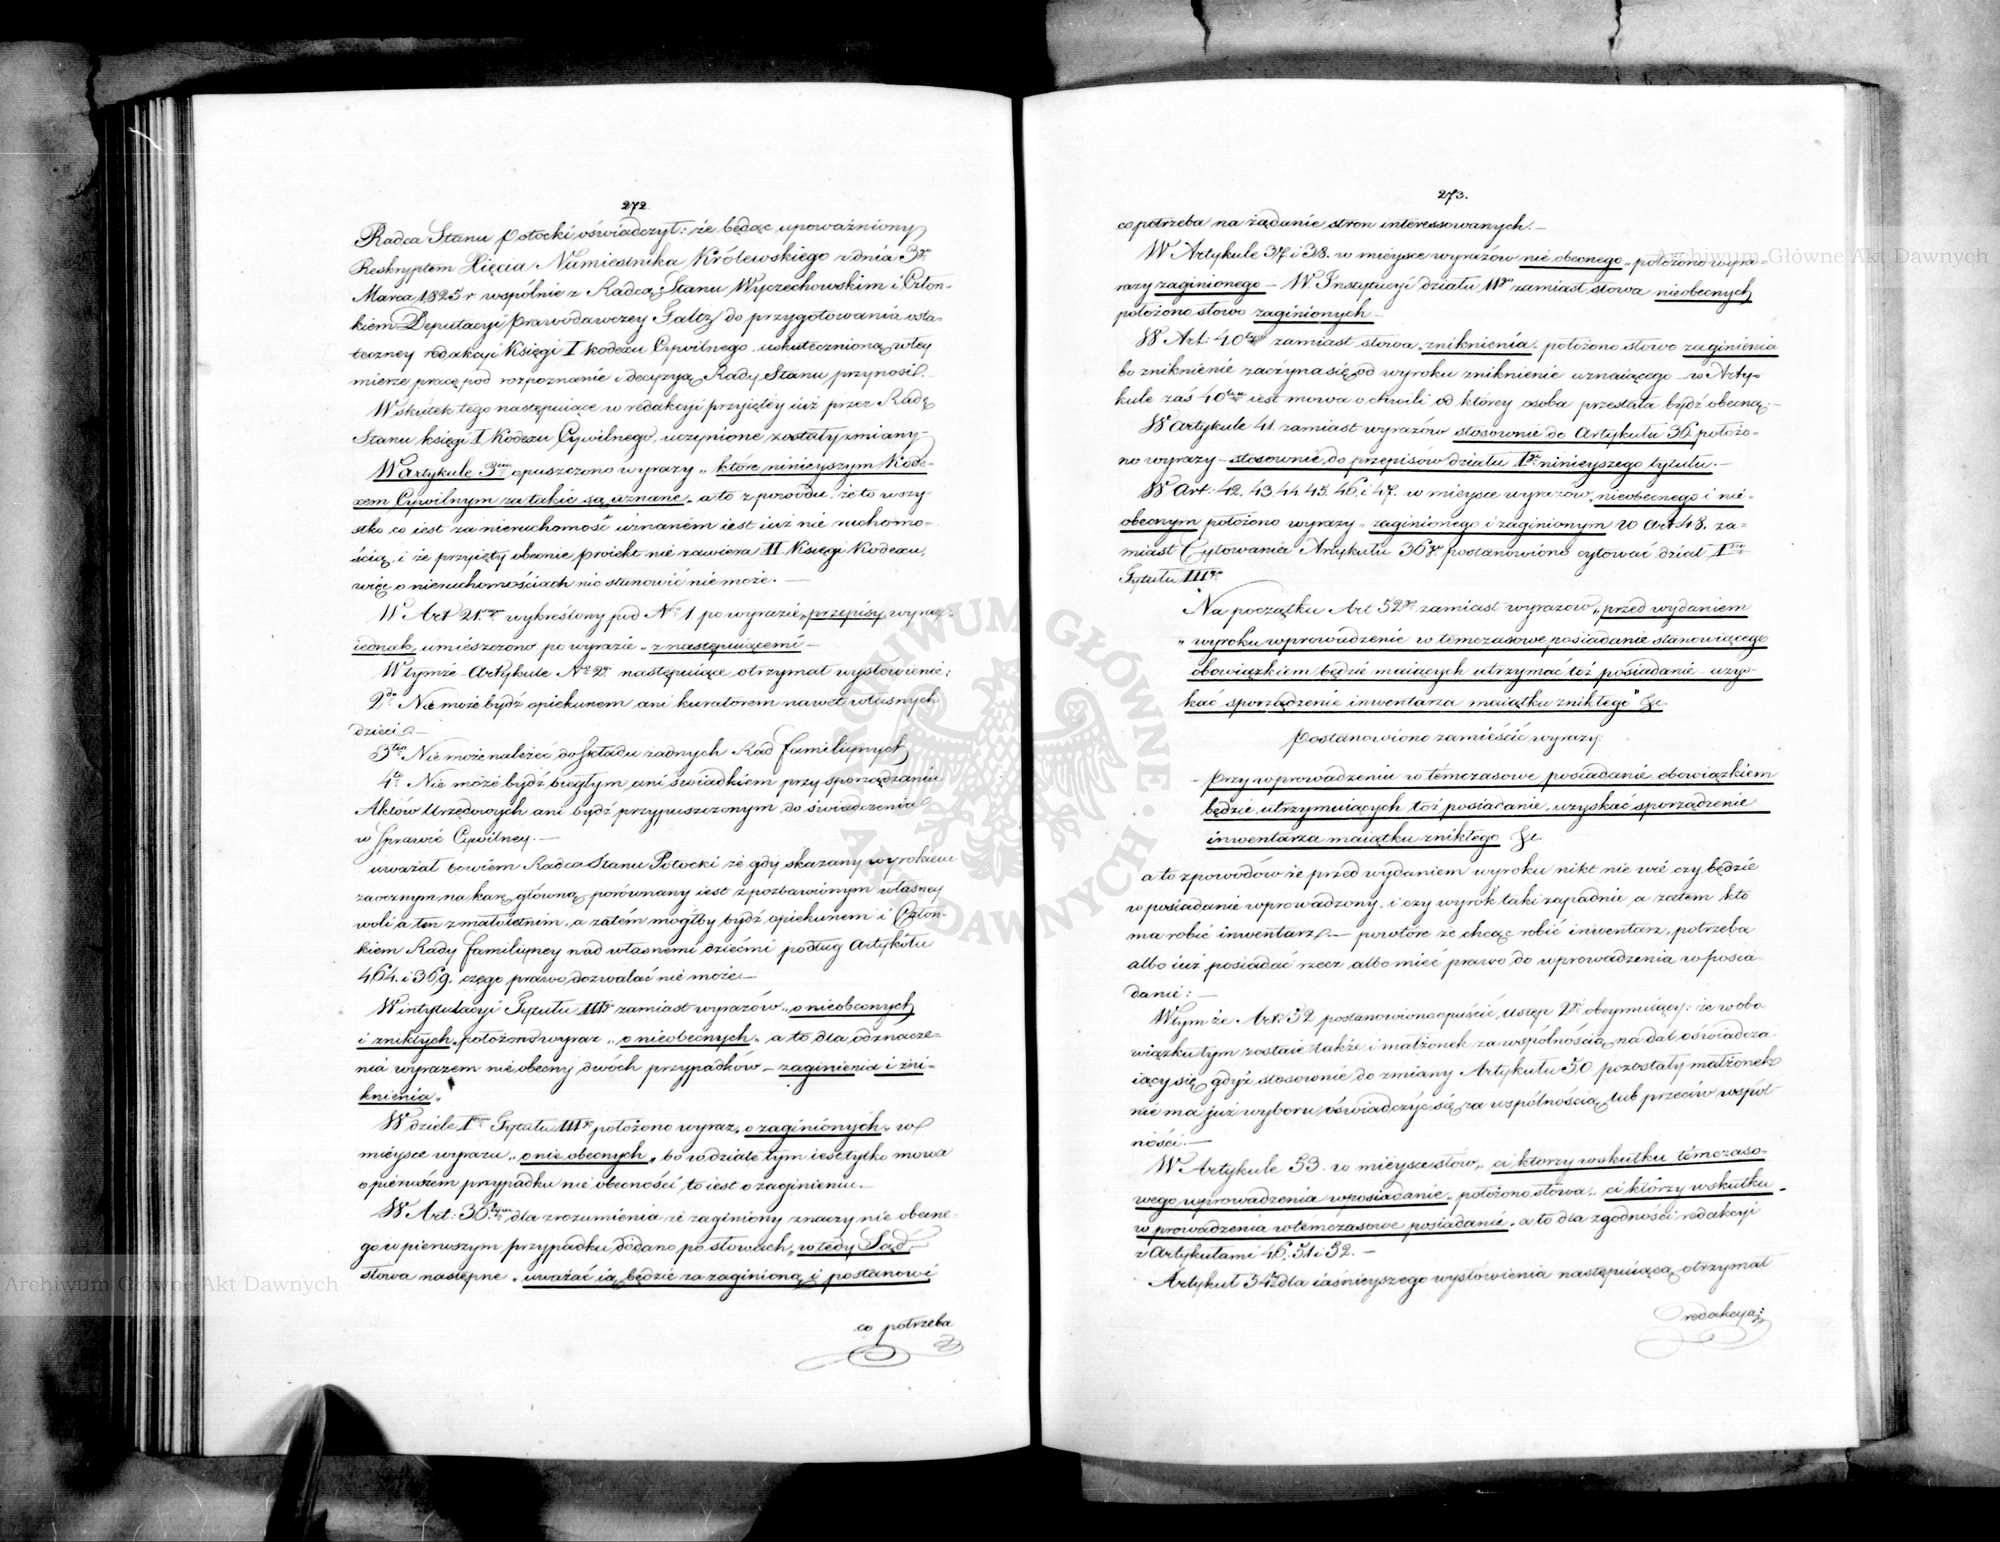 272
Radca Stanu Potocki oświadczył: że będąc upoważniony
Reskryptem Xięcia Namiestnika Królewskiego z dnia 3go
Marca 1825 r wspólnie z Radcą Stanu Wyczechowskim i Człon-
kiem Deputacyi Prawodawczey Faltz do przygotowania osta-
teczney redakcyi Księgi I kodexu Cywilnego, uskutecznioną w tey
mierze pracę pod rozpoznanie i decyzyą Rady Stanu przynosił.
Wskutek tego następuiące w redakcyi przyiętey iuż przez Radę
Stanu księgi I Kodexu Cywilnego, uczynione zostały zmiany-
W artykule 3cim opuszczono wyrazy „które ninieyszym Kode-
xem Cywilnym za takie są uznane„ a to z powodu, że to wszy-
stko co iest za nieruchomość uznaném iest iuż nie ruchomo-
ścią, i że przyięty obecnie proiekt nie zawiera II Księgi Kodexu,
więc o nieruchomościach nic stanowić nie może. —
W Art 21wszym wykreślony pod No 1 po wyrazie „przepisy wyraz
iednak umieszczono po wyrazie „z następuiącemi —
W tymże Artykule No 2. następuiące otrzymał wysłowienie;
2do Nie może bydź opiekunem ani kuratorem nawet własnych
dzieci. —
3tio Nie może należeć do składu żadnych Rad familiynych
4to Nie może bydź biegłym, ani świadkiem przy sporządzaniu
Aktów Urzędowych ani bydź przypuszczonym do świadczenia
w Sprawie Cywilney. —
uważał bowiem Radca Stanu Potocki że gdy skazany wyrokiem
zaocznym na karę główną, porównany iest z pozbawionym własney
woli a ten z małoletnim, a zatém mógłby bydź opiekunem i Człon-
kiem Rady familiyney nad własnemi dziećmi podług Artykułu
464. i 369. czego prawo dozwalać nie może —
W intytulacyi Tytułu IIIgo zamiast wyrazów „o nieobecnych
i znikłych„ położono wyraz „o nieobecnych„ a to dla odznacze-
nia wyrazem nie obecny dwóch przypadków — zaginienia i zni-
knienia„
W dziele Iwszym Tytułu IIIgo położono wyraz „o zaginionych„ w
mieysce wyrazu „o nie obecnych„ bo w dziale tym iest tylko mowa
o pierwszém przypadku nie obecności, to iest o zaginieniu. —
W Art: 36tym dla zrozumienia że zaginiony znaczy nie obecne-
go w pierwszym przypadku dodano po słowach „wtedy Sąd„
słowa następne „uważać ią będzie za zaginioną i postanowi
co potrzeba
273.
co potrzeba na żądanie stron interessowanych. —
W Artykule 37 i 38. w mieysce wyrazów nie obecnego „położono wyra-
razy zaginionego — W Instytucyi działu IIgo zamiast słowa nieobecnych
położono słowo zaginionych —
W Art: 40tym zamiast słowa „zniknienia„ położono słowo zaginienia
bo zniknienie zaczyna się od wyroku zniknienie uznaiącego — w Arty-
kule zaś 40tym iest mowa o chwili od którey osoba przestała bydź obecną. —
W artykule 41 zamiast wyrazów stosownie do Artykułu 36 położo-
no wyrazy — stosownie do przepisów działu Igo ninieyszego tytułu. —
W Art: 42. 43. 44. 45. 46. i 47. w mieysce wyrazów „nieobecnego i nie-
obecnym położono wyrazy „zaginionego i zaginionym W Art 48. za-
miast Cytowania Artykułu 36go postanowiono cytować dział Iszy
Tytułu IIIgo
Na początku Art 52go zamiast wyrazów „przed wydaniem
„wyroku wprowadzenie w témczasowe posiadanie stanowiącego
obowiązkiem będzie maiących utrzymać toż posiadanie uzys-
kać sporządzenie inwentarza maiątku znikłego" &c.
Postanowiono zamieścić wyrazy:
„Przy wprowadzeniu w témczasowe posiadanie, obowiązkiem
będzie utrzymuiących toż posiadanie, uzyskać sporządzenie
inwentarza maiątku znikłego &c.
a to z powodów że przed wydaniem wyroku nikt nie wié czy będzie
w posiadanie wprowadzony, i czy wyrok taki zapadnie a zatém kto
ma robić inwentarz — powtóre że chcąc robić inwentarz, potrzeba
albo iuż posiadać rzecz albo mieć prawo do wprowadzenia w posia-
danie: —
W tym że Art: 52 postanowiono opuścić, ustęp 2gi obeymuiący: że w obo-
wiązku tym zostaie także i małżonek za wspólnością na dal oświadcza-
iący się, gdyż stosownie do zmiany Artykułu 50 pozostały małżonek
nie ma już wyboru oświadczyć się za wspólnością lub przeciw wspól-
ności. —
W Artykule 53. w mieysce słów „ci którzy w skutku témczaso-
wego wprowadzenia w posiadanie„ położono słowa „ci którzy w skutku
w prowadzenia w témczasowe posiadanie„ a to dla zgodności redakcyi
z Artykułami 46. 51 i 52. —
Artykuł 54ty dla iaśnieyszego wysłowienia następuiącą otrzymał
redakcyą:
Archiwum Główne Akt Dawnych
Archiwum Główne Akt Dawnych
ARCHIWUM GŁÓWNE AKT DAWNYCH